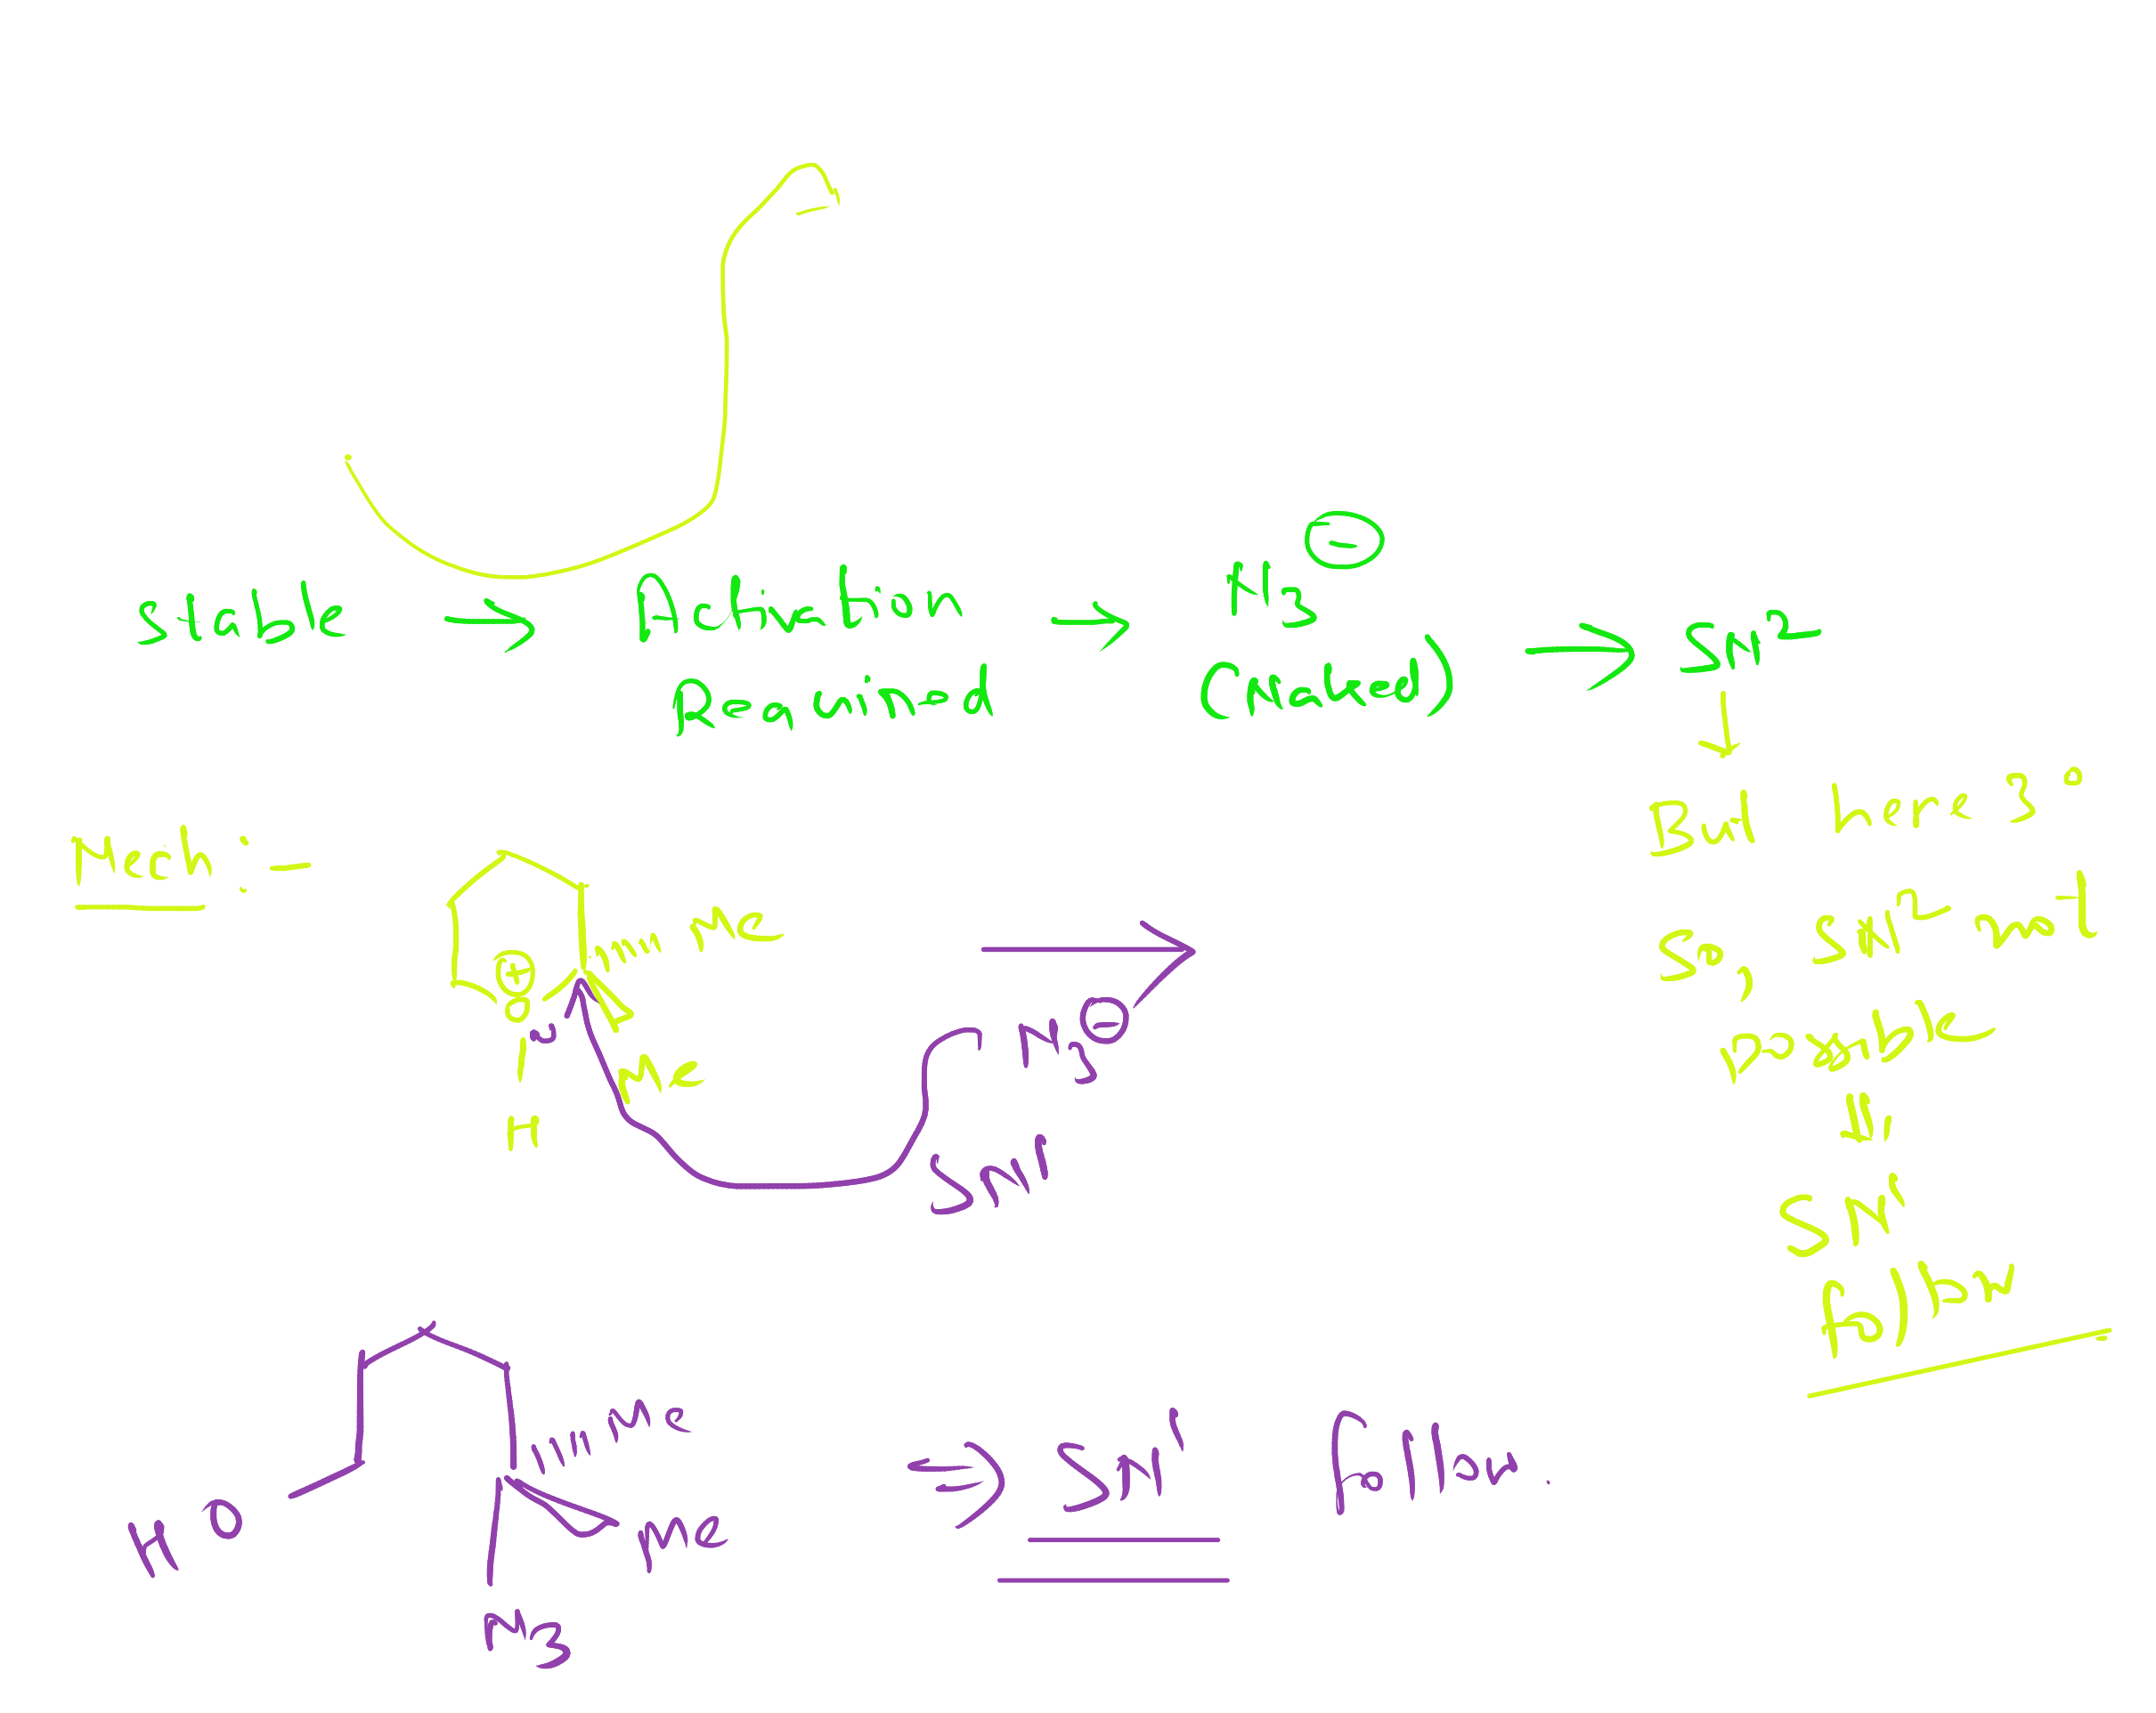 stable → Activation Required → N3⊖ (naked) → SN2
But here 3°
So, SN2 not possible
⇓
SN1
follow
Mech :-
Me
⊕
O
H
Me
N3⊖
SN1
HO
Me
Me
N3
⇒ SN1 follow.